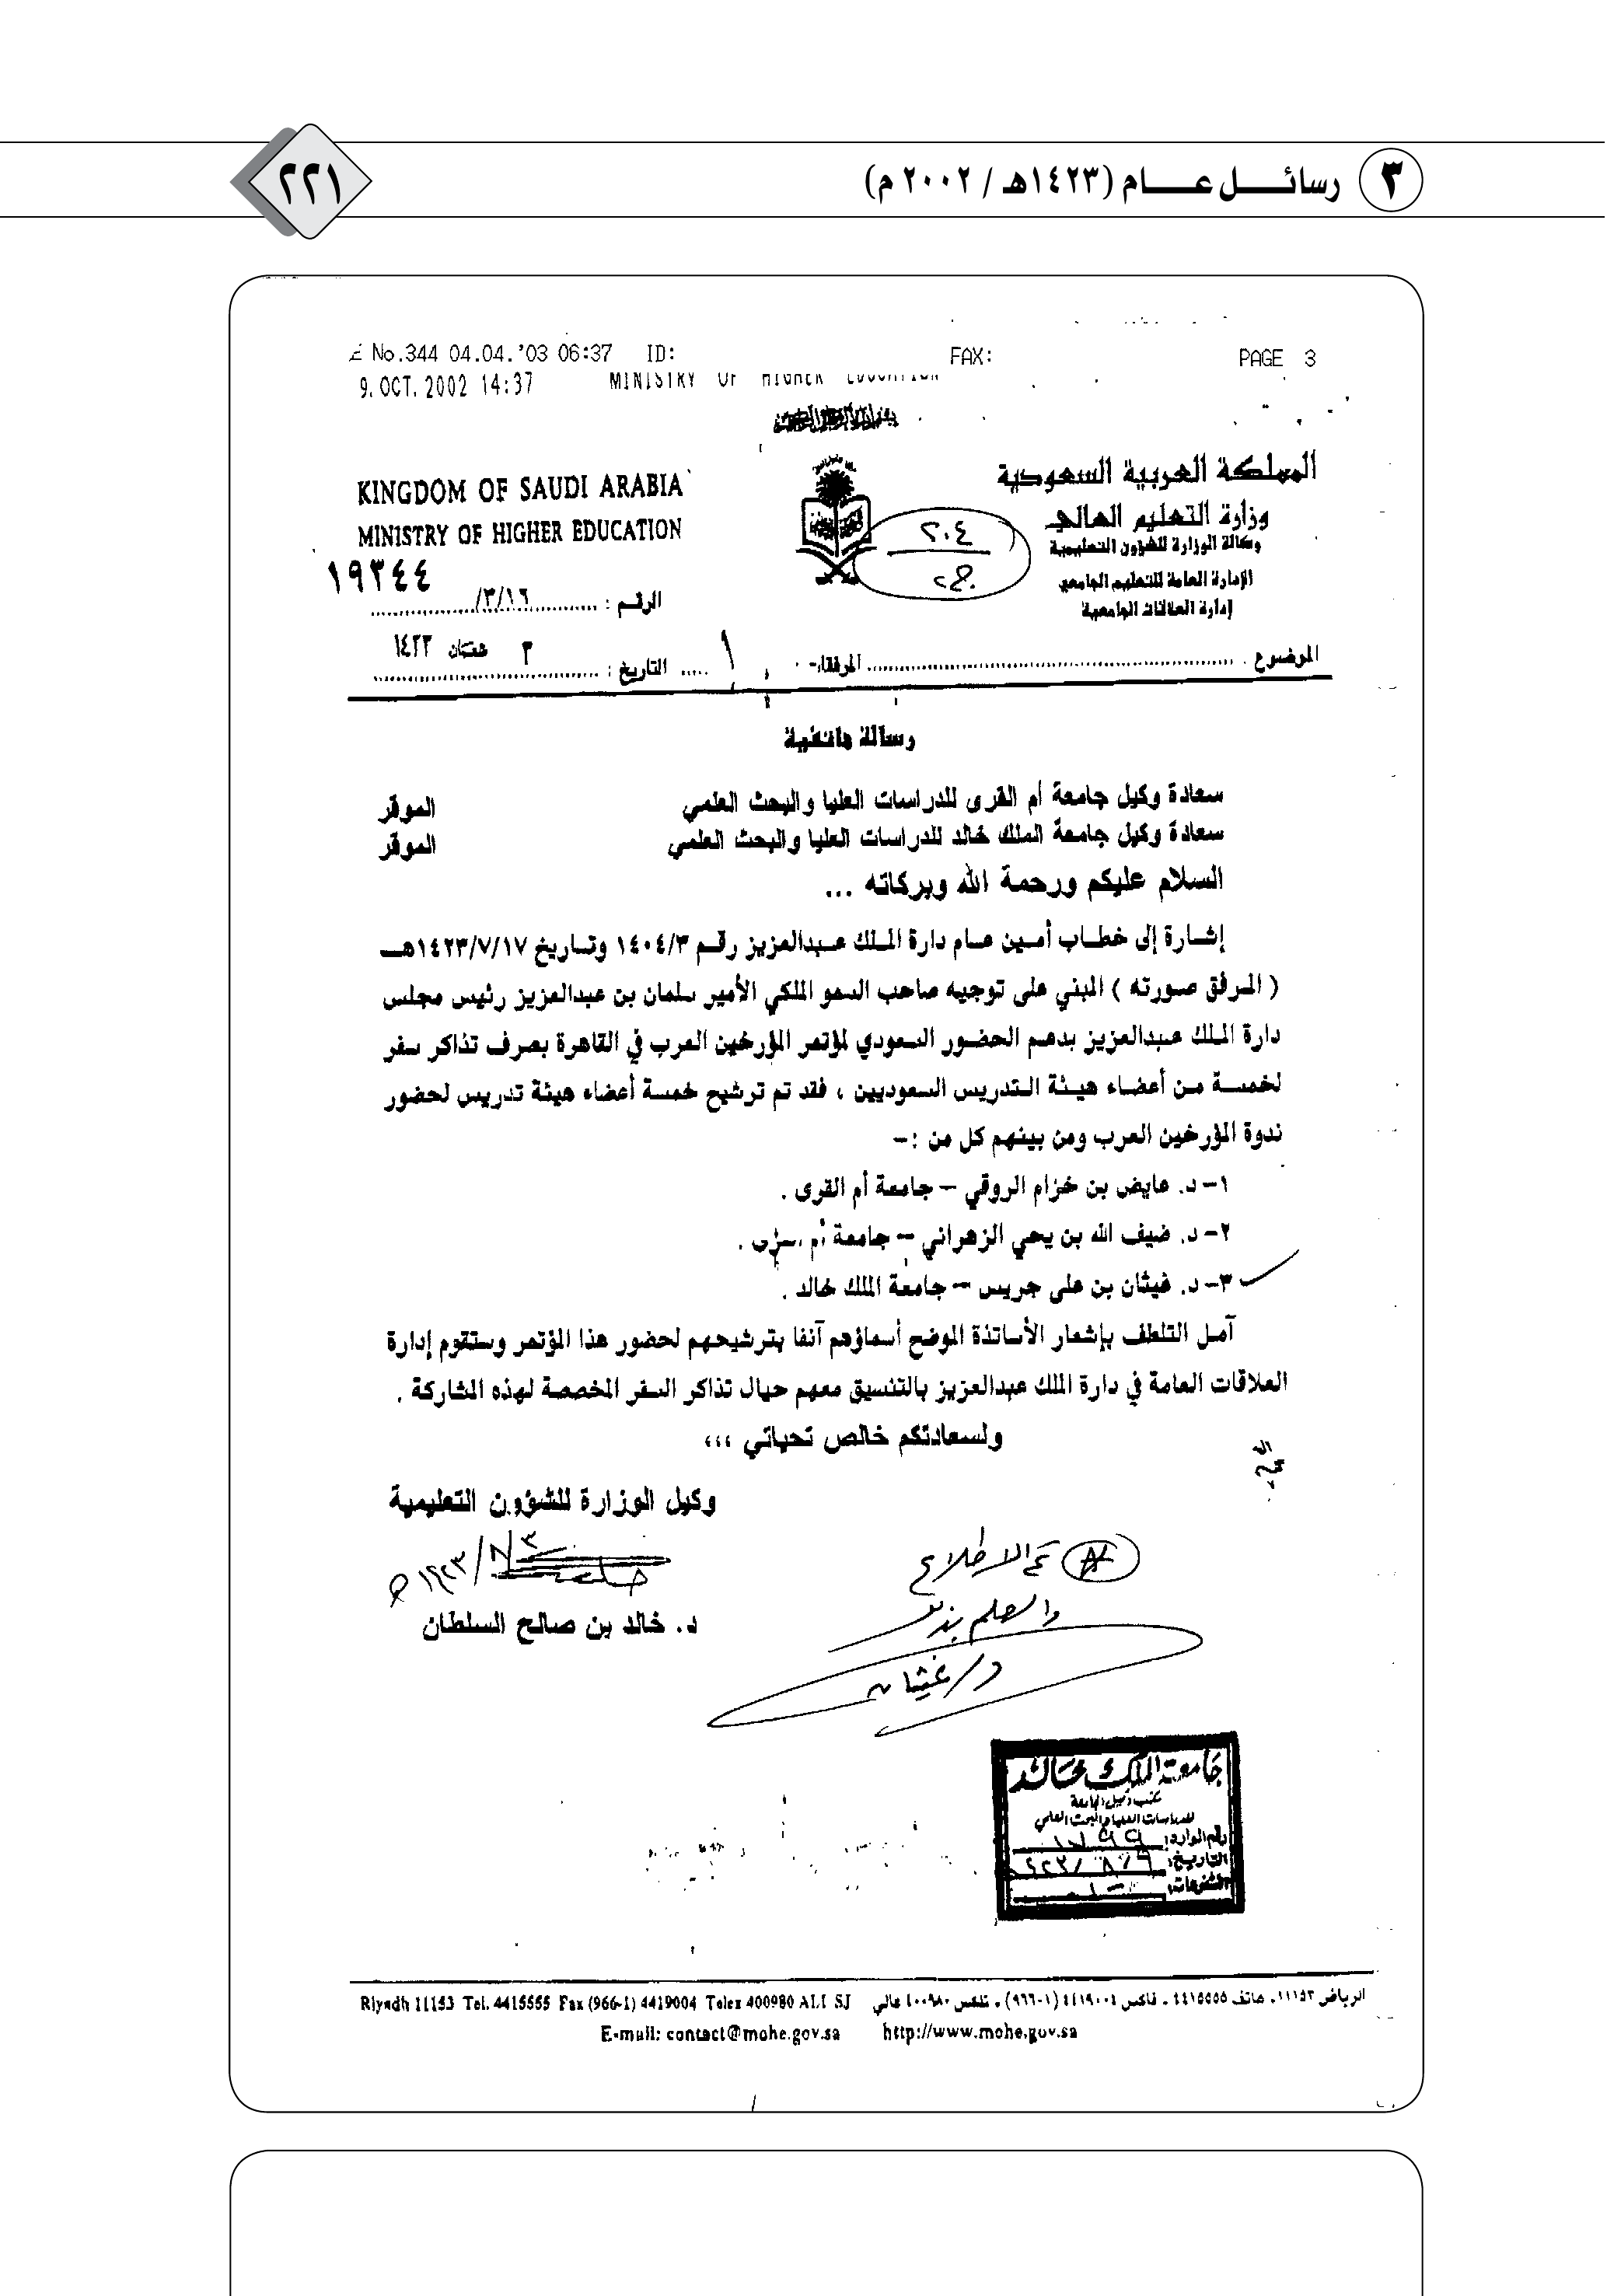 ٣ رسائل عام (١٤٢٣هـ / ٢٠٠٢ م)
٢٢١
No.344 04.04.'03 06:37 ID: FAX: PAGE 3
9.OCT.2002 14:37 MINISTRY OF HIGHER EDUCATION
المملكة العربية السعودية
وزارة التعليم العالي
وكالة الوزارة للشؤون التعليمية
الإدارة العامة للتعليم الجامعي
إدارة العلاقات الجامعية
٢٠٤
KINGDOM OF SAUDI ARABIA
MINISTRY OF HIGHER EDUCATION
١٩٣٤٤
الرقم : ٣/١٦/
الموضوع المرفقات ١ التاريخ : ٣ شعبان ١٤٢٣
رسالة هاتفية
سعادة وكيل جامعة أم القرى للدراسات العليا والبحث العلمي الموقر
سعادة وكيل جامعة الملك خالد للدراسات العليا والبحث العلمي الموقر
السلام عليكم ورحمة الله وبركاته ...
إشارة إلى خطاب أمين عام دارة الملك عبدالعزيز رقم ١٤٠٤/٣ وتاريخ ١٤٢٣/٧/١٧هـ
( المرفق صورته ) المبني على توجيه صاحب السمو الملكي الأمير سلمان بن عبدالعزيز رئيس مجلس
دارة الملك عبدالعزيز بدعم الحضور السعودي لمؤتمر المؤرخين العرب في القاهرة بصرف تذاكر سفر
لخمسة من أعضاء هيئة التدريس السعوديين ، فقد تم ترشيح خمسة أعضاء هيئة تدريس لحضور
ندوة المؤرخين العرب ومن بينهم كل من :-
١- د. عايض بن خزام الروقي – جامعة أم القرى .
٢- د. ضيف الله بن يحي الزهراني – جامعة أم القرى .
٣- د. غيثان بن على جريس – جامعة الملك خالد .
آمل التلطف بإشعار الأساتذة الموضح أسماؤهم آنفا بترشيحهم لحضور هذا المؤتمر وستقوم إدارة
العلاقات العامة في دارة الملك عبدالعزيز بالتنسيق معهم حيال تذاكر السفر المخصصة لهذه المشاركة .
ولسعادتكم خالص تحياتي ،،،
وكيل الوزارة للشؤون التعليمية
١٤٢٣/٨/٣ هـ
د. خالد بن صالح السلطان
تم الاطلاع
والعلم بذلك
د/ غيثان
جامعة الملك خالد
مكتب وكيل الجامعة
للدراسات العليا والبحث العلمي
رقم الوارد:
التاريخ:
المشفوعات:
الرياض ١١١٥٣ . هاتف ٤٤١٥٥٥٥ . فاكس ٤٤١٩٠٠٤ (١-٩٦٦) . تلكس ٤٠٠٩٨٠ عالي Riyadh 11153 Tel. 4415555 Fax (966-1) 4419004 Telex 400980 ALI SJ
E-mail: contact@mohe.gov.sa http://www.mohe.gov.sa